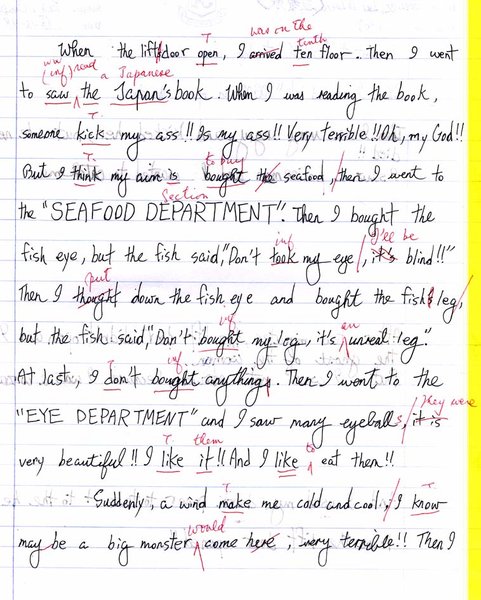 T was on the
When the lift door open, I arrived ten floor. Then I went
tenth
ww (inf) read a Japanese
to saw the Japan's book. When I was reading the book,
T
someone kick my ass!! Is my ass!! Very terrible!! Oh, my God!!
T to buy
But I think my aim is bought the seafood, then I went to
Section
the "SEAFOOD DEPARTMENT". Then I bought the
inf I'll be
fish eye, but the fish said, "Don't took my eye, it's blind!!"
put
Then I thought down the fish eye and bought the fish leg,
inf an
but the fish said, "Don't bought my leg, it's unreal leg".
T inf
At last, I don't bought anythings. Then I went to the
they were
"EYE DEPARTMENT" and I saw many eyeballs, it is
T them to
very beautiful!! I like it!! And I like eat them!!
T T
Suddenly, a wind make me cold and cool, I know
would
may be a big monster come here, very terrible!! Then I